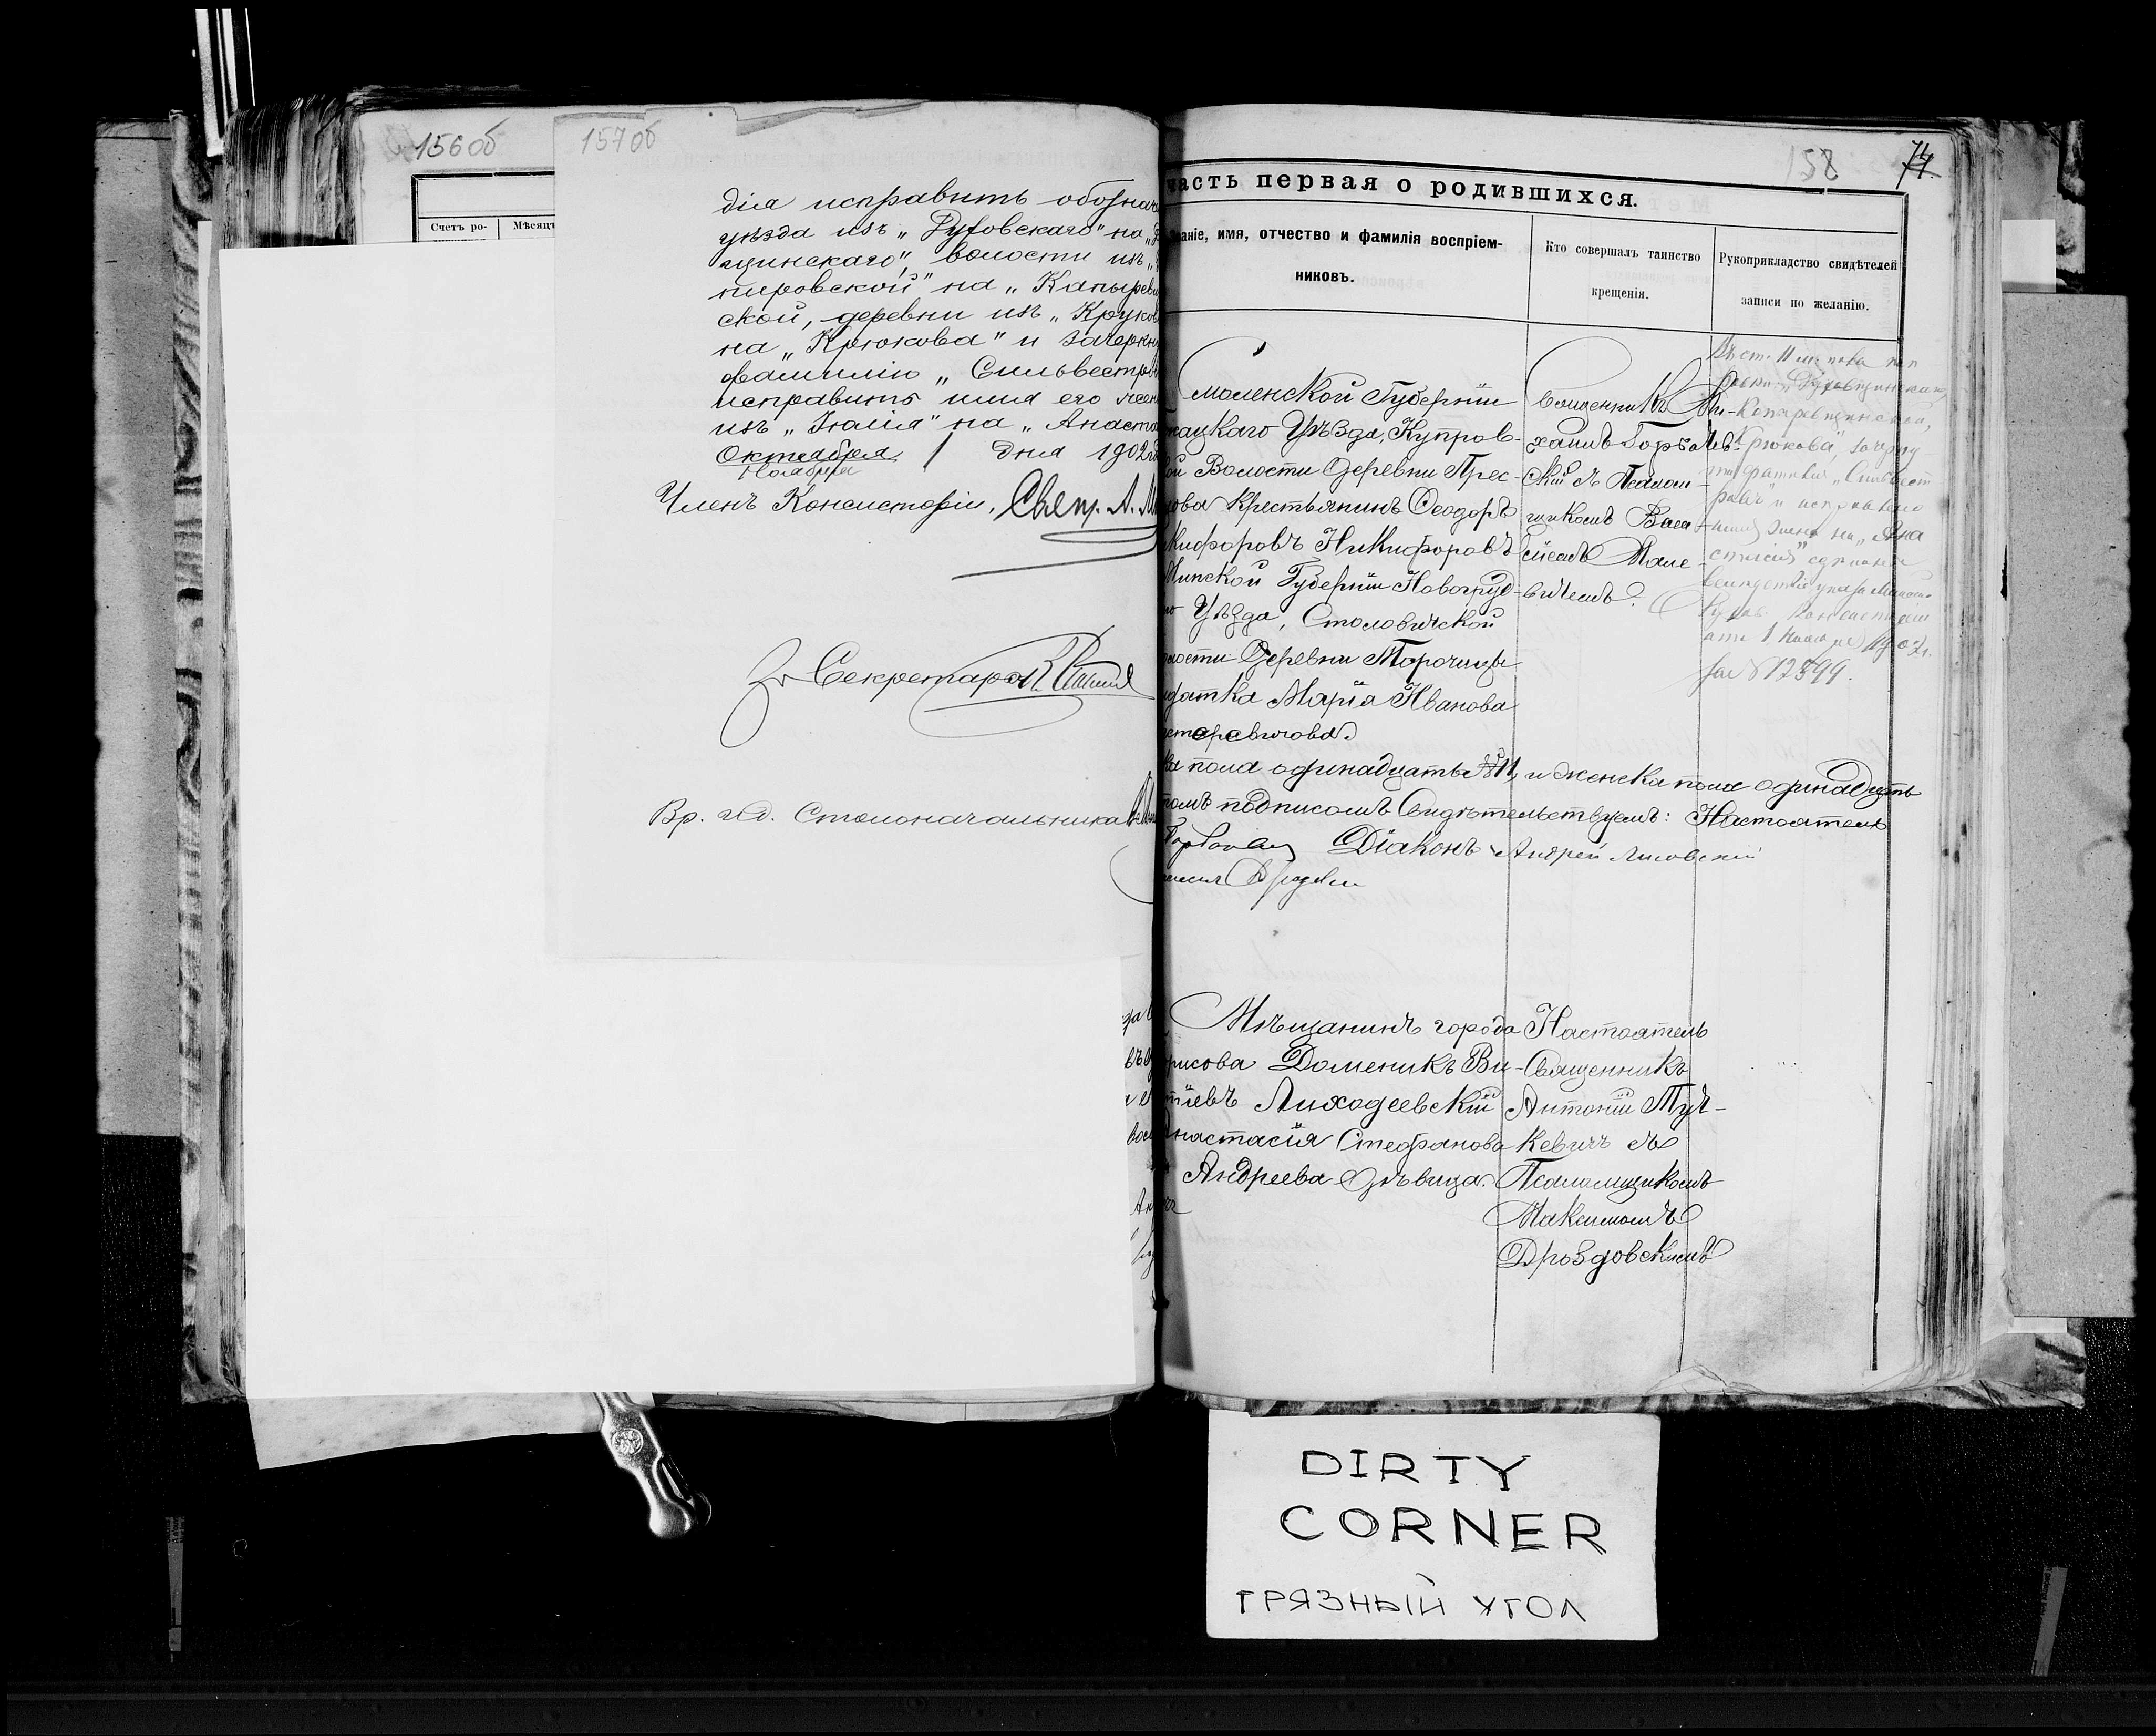 156об
157об
Счетъ ро-
Мѣсяцъ
діа исправить обознач
уѣзда изъ „Руховскаго" на „
щинскаго", волости изъ „
пировской" на „Капырев
ской, деревни изъ „Круков
на „Крюкова" и зачеркн
фамилію „Сильвестров
исправить имя его жен
изъ „Юлія" на „Анаста
Октября 1 дня 1902 го
Ноября
Членъ Консисторіи, Свящ. А.
За Секретаря
Вр. и. д. Столоначальника
158
74.
часть первая о родившихся.
званіе, имя, отчество и фамилія воспріем-
никовъ.
Кто совершалъ таинство
крещенія.
Рукоприкладство свидѣтелей
записи по желанію.
Смоленской Губерніи
Уѣзда, Купров-
ой Волости Деревни Прес-
кова Крестьянинъ Ѳеодоръ
Никифоровъ Никифоровъ
Минской Губерніи Новогруд-
го Уѣзда, Столовичской
лости Деревни Торочицы
датка Марія Иванова
Священникъ Ми-
хаилъ Горбалев-
скій съ Псалом-
щикомъ Васи-
ліемъ Мале-
вичемъ.
Крюкова", зачерк
фамилія „Сильвест
ровъ" и исправлено
имя жены на „Ана
стасія" сдѣланы
вслѣдствіе указа Минск.
Духов. Консисторіи
отъ 1 Ноября 1902 г.
за № 12899.
ка пола одинадцать № 11, и женска пола одинадцать
томъ подписомъ Свидѣтельствуемъ: Настоятель
Діаконъ Андрей Лисовскій
Мѣщанинъ города
рисова Доменикъ Ви-
тіевъ Лиходеевскій
Анастасія Стефанова
Андреева Дѣвица.
Настоятель
Священникъ
Антоній Туч-
кевичъ съ
Псаломщикомъ
Максимомъ
Дроздовскимъ
DIRTY
CORNER
ГРЯЗНЫЙ УГОЛ